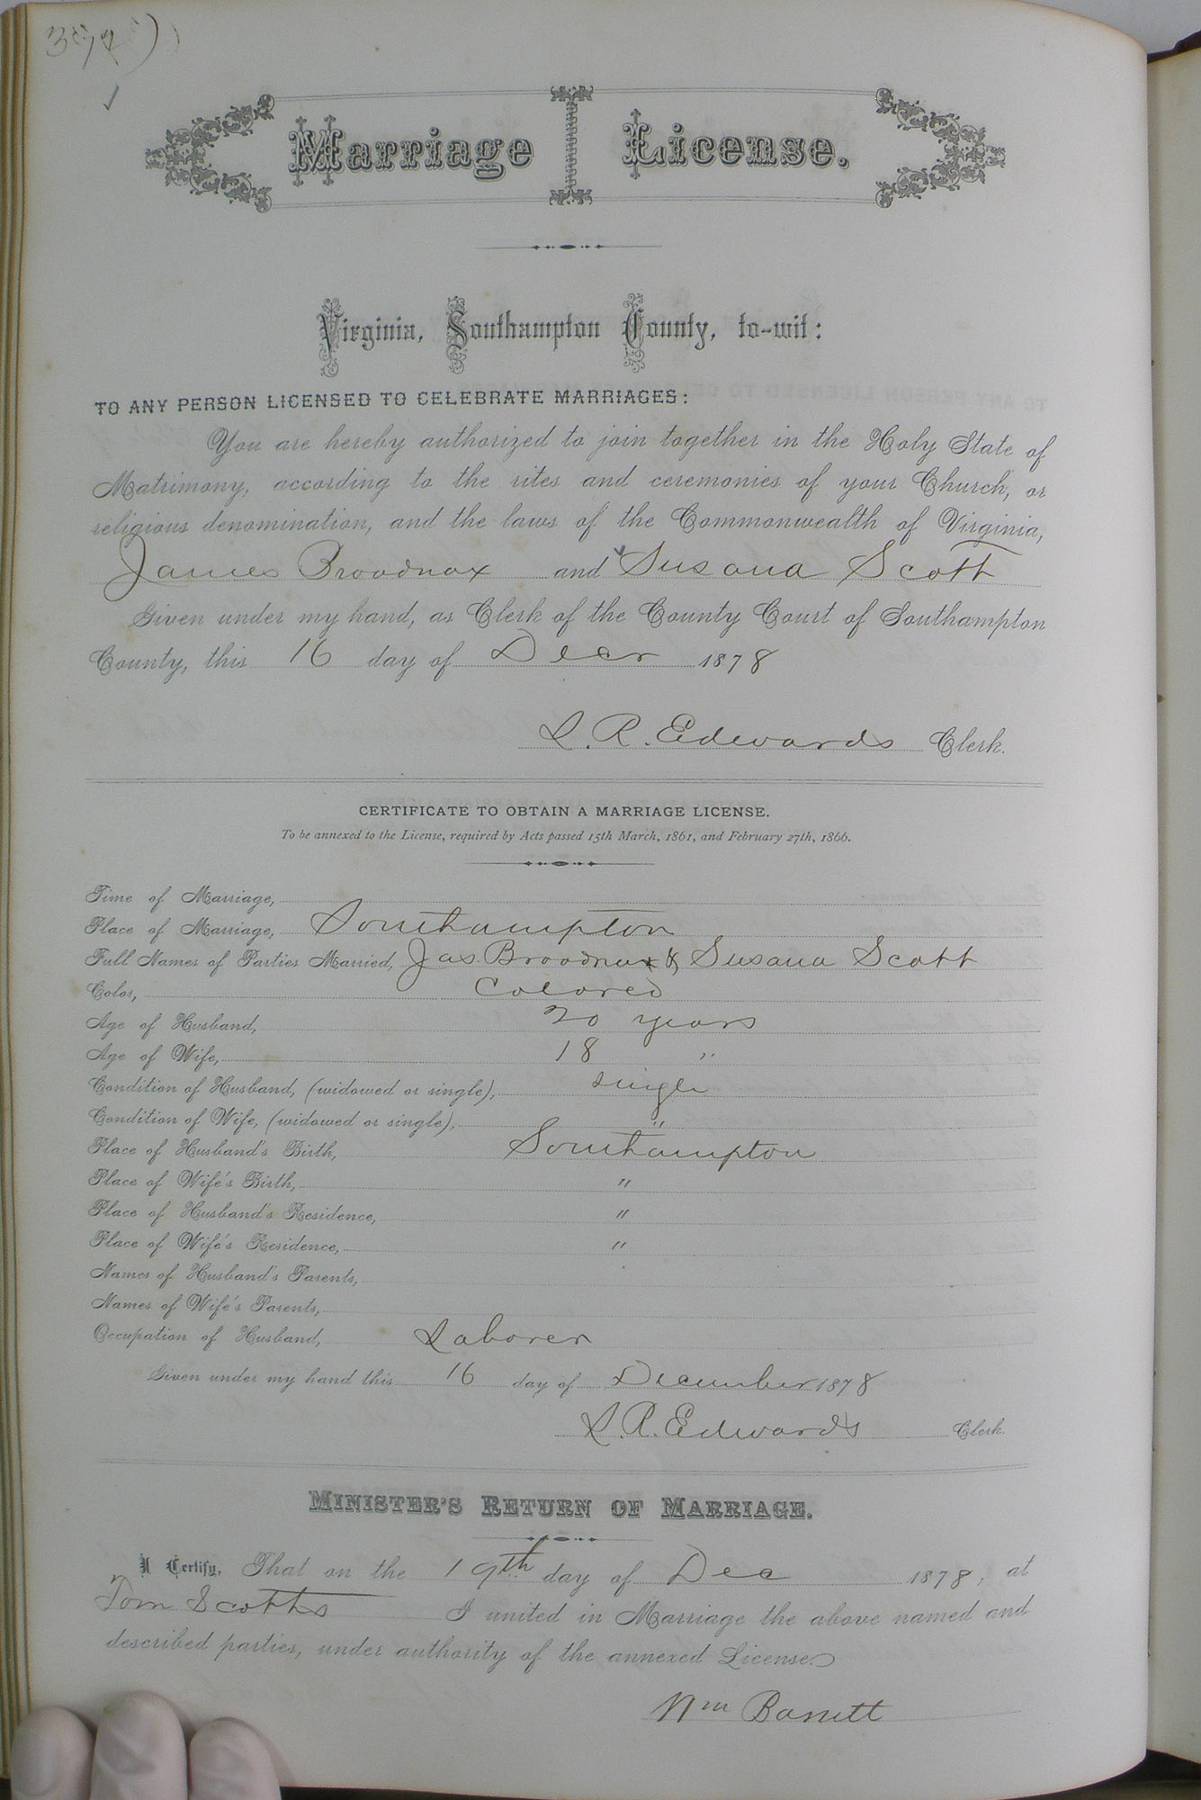 Marriage License.
Virginia, Southampton County, to-wit:
TO ANY PERSON LICENSED TO CELEBRATE MARRIAGES:
You are hereby authorized to join together in the Holy State of
Matrimony, according to the rites and ceremonies of your Church, or
religious denomination, and the laws of the Commonwealth of Virginia,
James Broadnax and Susana Scott
Given under my hand, as Clerk of the County Court of Southampton
County, this 16 day of Decr 1878
L. R. Edwards Clerk.
CERTIFICATE TO OBTAIN A MARRIAGE LICENSE.
To be annexed to the License, required by Acts passed 15th March, 1861, and February 27th, 1866.
Time of Marriage,
Place of Marriage, Southampton
Full Names of Parties Married, Jas. Broadnax & Susana Scott
Color, Colored
Age of Husband, 20 years
Age of Wife, 18 "
Condition of Husband, (widowed or single), single
Condition of Wife, (widowed or single), "
Place of Husband's Birth, Southampton
Place of Wife's Birth, "
Place of Husband's Residence, "
Place of Wife's Residence, "
Names of Husband's Parents,
Names of Wife's Parents,
Occupation of Husband, Laborer
Given under my hand this 16 day of December 1878
L. R. Edwards Clerk
MINISTER'S RETURN OF MARRIAGE.
I Certify, That on the 19th day of Dec 1878, at
Tom Scotts I united in Marriage the above named and
described parties, under authority of the annexed License.
Wm Barrett